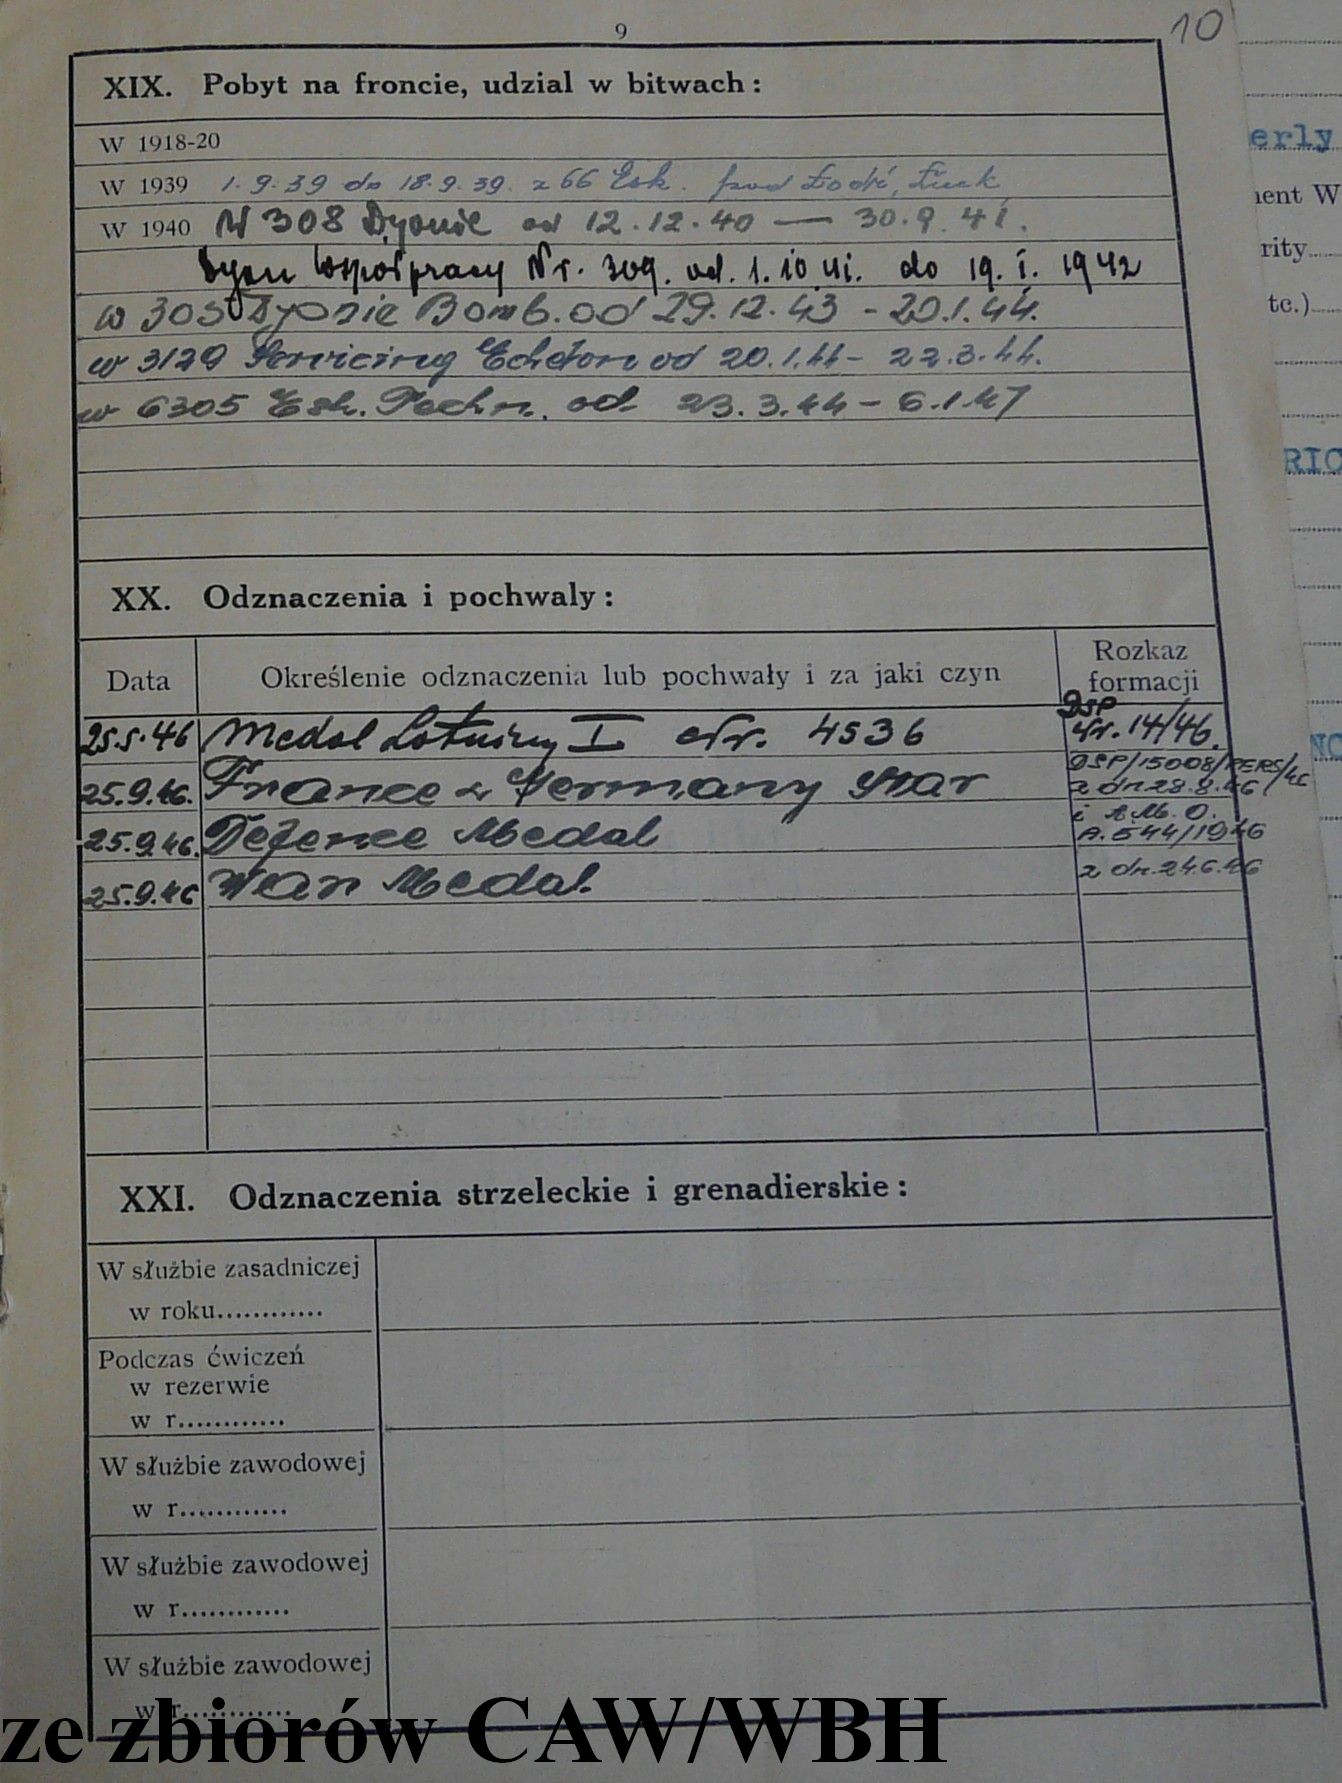 9
10
XIX. Pobyt na froncie, udzial w bitwach:
W 1918-20
W 1939 1.9.39 do 18.9.39. z 66 Esk. pod Łodź, Łuck
W 1940 W 308 Dyonie od 12.12.40 — 30.9.41.
Dyon Współpracy Nr. 309. od. 1.10.41. do 19.I.1942
w 305 Dyonie Bomb. od 29.12.43 - 20.1.44.
w 3129 Servicing Echelon od 20.1.44 - 22.3.44.
w 6305 Esk. Techn. od 23.3.44 - 6.1.47
XX. Odznaczenia i pochwaly:
Data Określenie odznaczenia lub pochwały i za jaki czyn Rozkaz formacji
25.5.46 Medal Lotniczy I Nr. 4536 DSP Nr. 14/46.
25.9.46. France & Germany Star DSP/15008/PERS/46 z dn. 28.8.46
25.9.46. Defence Medal i A.M.O. A.544/1946
25.9.46 War Medal. z dn. 24.6.46
XXI. Odznaczenia strzeleckie i grenadierskie:
W służbie zasadniczej
w roku............
Podczas ćwiczeń
w rezerwie
w r............
W służbie zawodowej
w r............
W służbie zawodowej
w r............
W służbie zawodowej
w r............
erly
ent W
rity......
tc.)......
RIC
ze zbiorów CAW/WBH